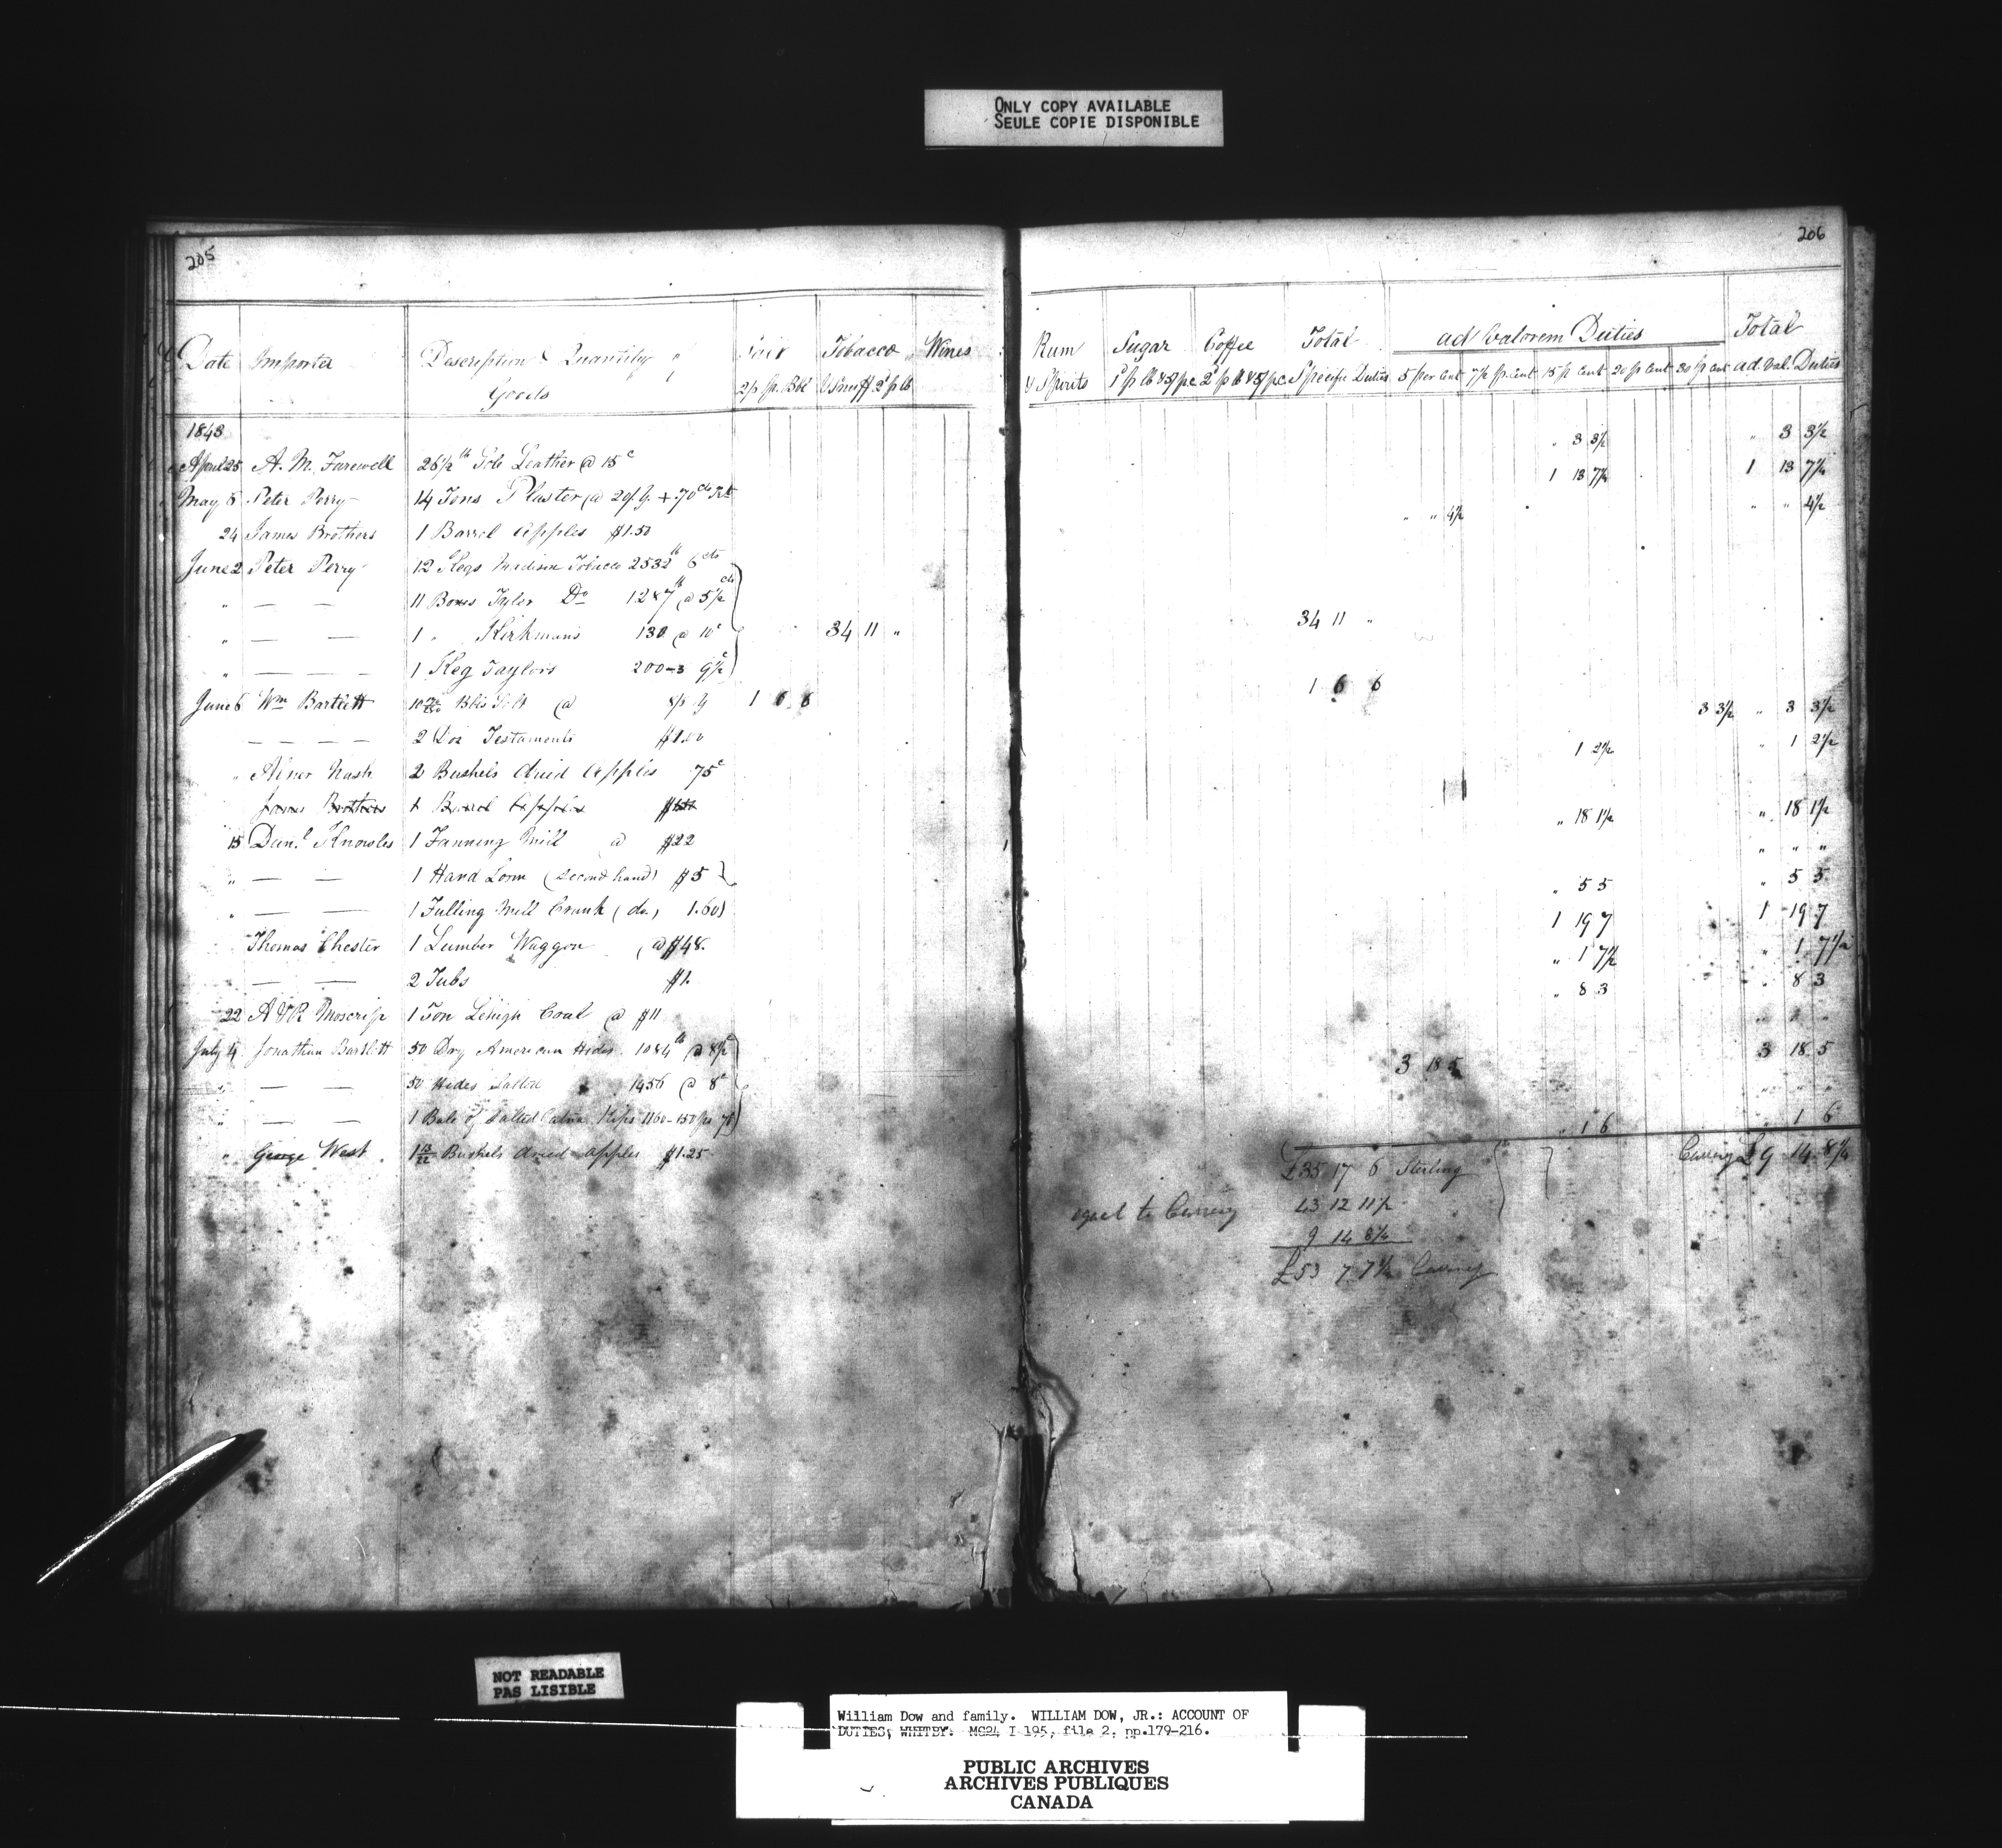 ONLY COPY AVAILABLE
SEULE COPIE DISPONIBLE
205
Date Importer Description & Quantity of Goods 2/ pr. Bbl Tobacco & Snuff 2d p lb Wines
1843
April 25 A. M. Farewell 26½ lb Sole Leather @ 15c
May 8 Peter Perry 14 Tons Plaster @
24 James Brothers 1 Barrel Apples $1.50
June 2 Peter Perry 12 Kegs Madison Tobacco 2532 lb 6 cts
" — — 11 Boxes Tyler Do 1287 lb @ 5½ cts
" — — 1 " Kirkmans 130 @ 10c 34 11 "
" — — 1 Keg Taylors 200-3 9½
June 6 Wm Bartlett Bbls Salt @ 1 6 6
— — 2 Doz Testaments $1.00
" Abner Nash 2 Bushels dried Apples 75c
James Brothers 1 Barrel Apples
15 Danl Knowles 1 Fanning Mill @ $22
" — — 1 Hand Loom (second hand) $5
" — — 1 Fulling Mill Crank (do.) 1.60
Thomas Chester 1 Lumber Waggon @ $48.
— — 2 Tubs $1.
22 A & R Moscrip 1 Ton Lehigh Coal @ $11
July 4 Jonathan Bartlett 50 Dry American Hides 1084 lb @ 8½c
" — — 50 Hides Salted 1456 @ 8c
" — — 1 Bale of Salted Kips 1160-150
" George West Bushels dried apples $1.25
206
Rum & Spirits Sugar Coffee Total Specific Duties ad Valorem Duties 5 per cent 7½ pr. cent 15 p cent 20 p cent 30 p cent Total ad. Val. Duties
" 3 3½ " 3 3½
1 13 7¼ 1 13 7¼
" " 4½ " " 4½
34 11 "
1 6 6
3 3½ " 3 3½
1 2½ " 1 2½
" 18 1½ " 18 1½
" " "
" 5 5 " 5 5
1 19 7 1 19 7
" 1 7½ " 1 7½
" 8 3 " 8 3
3 18 5 3 18 5
" 1 6 " 1 6
£35 17 6 Sterling Currency £9 14 8¼
equal to Currency 43 12 11½
9 14 8¼
£53 7 7¾ Currency
NOT READABLE
PAS LISIBLE
William Dow and family. WILLIAM DOW, JR.: ACCOUNT OF
DUTIES, WHITBY. MG24 I 195, file 2, pp.179-216.
PUBLIC ARCHIVES
ARCHIVES PUBLIQUES
CANADA